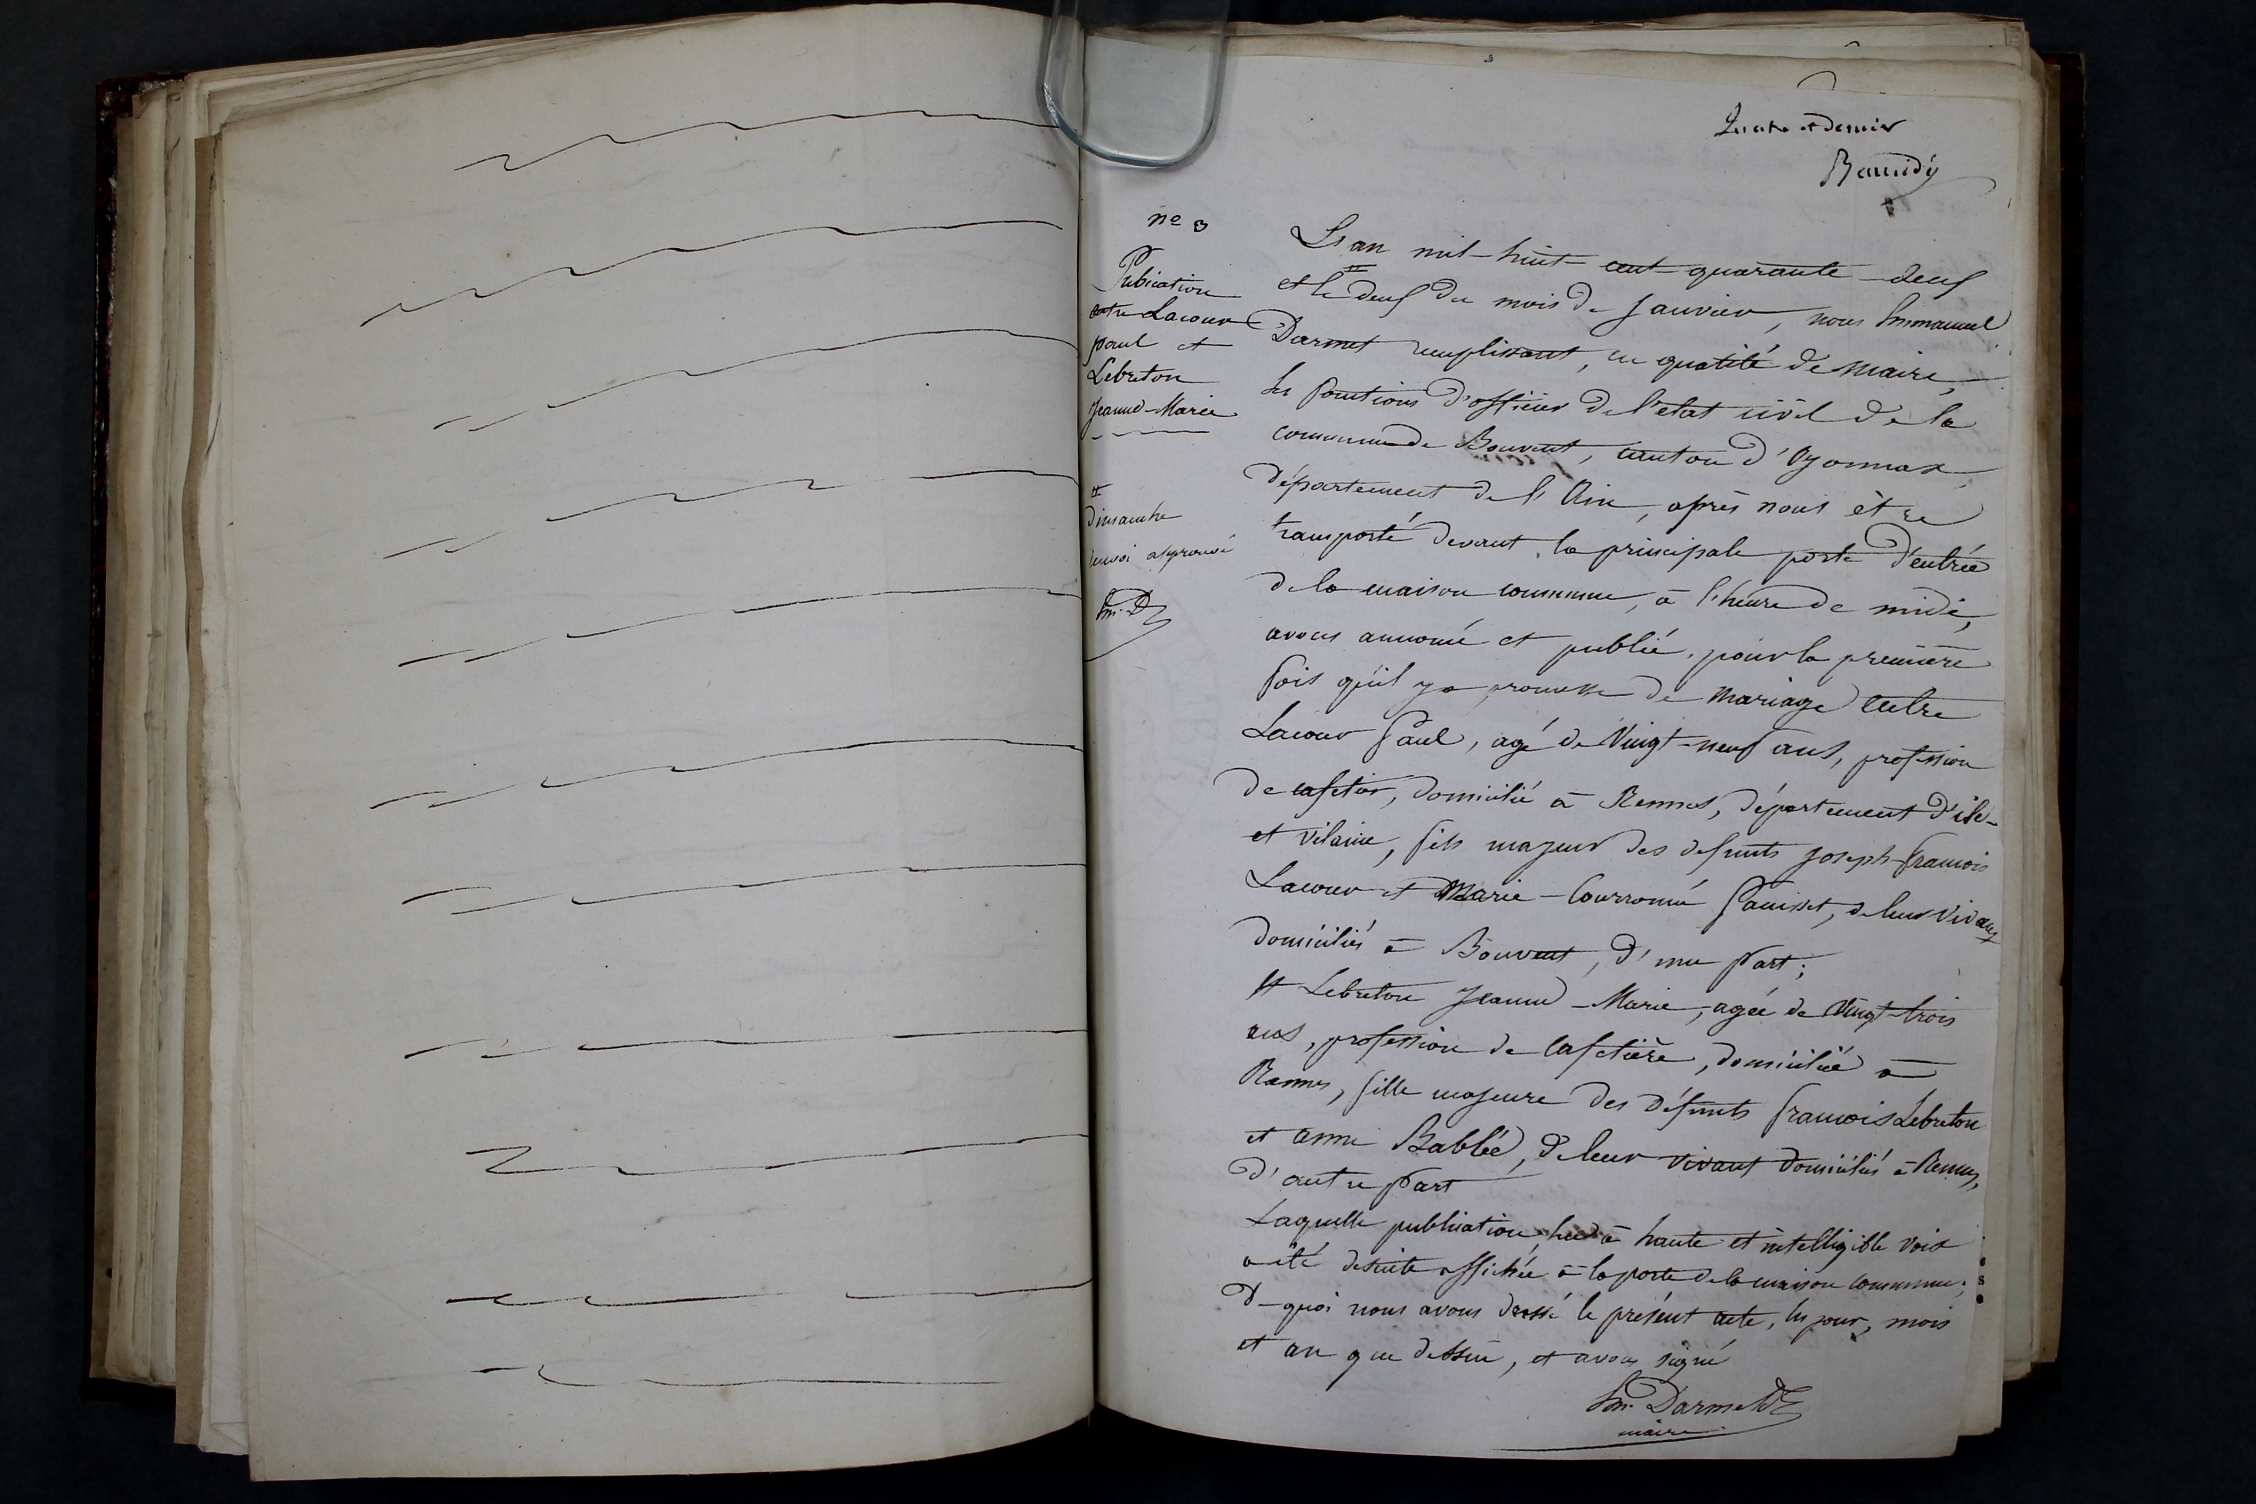 et dernier
n° 3
Publication
entre Lacour
paul et
Lebreton
Jeanne-Marie
#
Dimanche
renvoi approuvé
Em. D
L'an mil-huit-cent-quarante-deux
et le # deux du mois de Janvier, nous Emmanuel
Darmet remplissant, en qualité de Maire,
les fonctions d'officier de l'etat civil de la
commune de Bouvent, canton d'Oyonnax,
département de l'Ain, après nous être
transporté devant la principale porte d'entrée
de la maison commune, à l'heure de midi,
avons annoncé et publié, pour la première
fois qu'il y a promesse de mariage entre
Lacour Paul, agé de Vingt-neuf ans, profession
de cafetier, domicilié à Rennes, département d'ile-
et vilaine, fils majeur des defunts joseph-francois
Lacour et Marie-Couronné de leur vivant
domiciliés à Bouvent, d'une part;
et Lebreton Jeanne-Marie, agée de Vingt-trois
ans, profession de Cafetière, domiciliée à
Rennes, fille majeure des défunts francois Lebreton
et anne Bablée, de leur vivant domiciliés à Rennes,
d'autre part
Laquelle publication, lue à haute et intelligible voix
a été desuite affichée à la porte de la maison commune;
De quoi nous avons dressé le présent acte, les jour, mois
et an que dessus, et avons signé
Em. Darmet
maire